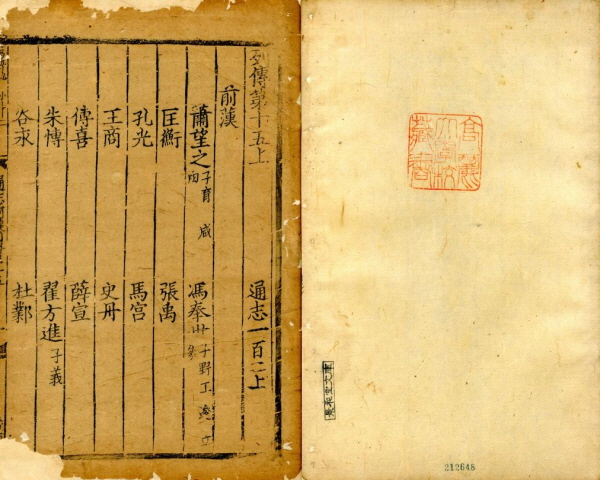 列傳第十五上
通志一百二上
前漢
蕭望之 子育 咸 由
馮奉世 子野王 逡 立 參
匡衡
張禹
孔光
馬宮
王商
史丹
傅喜
薛宣
朱愽
翟方進 子義
谷永
杜鄴
高麗
大學校
藏書
212648